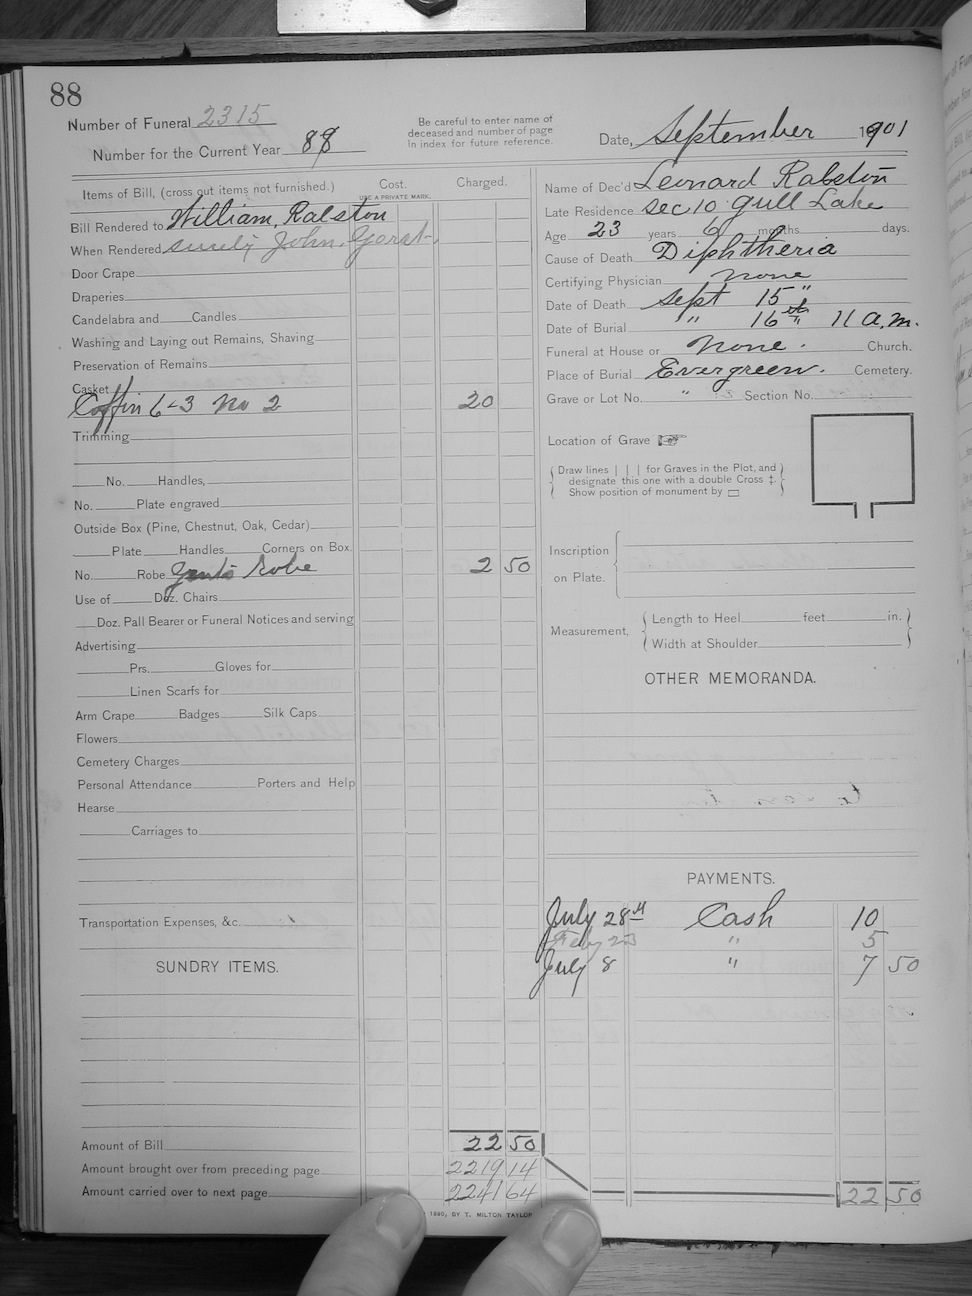 88
Number of Funeral 2315
Number for the Current Year 88
Be careful to enter name of
deceased and number of page
in index for future reference.
Date, September 1901
Items of Bill, (cross out items not furnished.)
Cost.
USE A PRIVATE MARK.
Charged.
Bill Rendered to William, Ralston
When Rendered surely John
Door Crape
Draperies
Candelabra and Candles
Washing and Laying out Remains, Shaving
Preservation of Remains
Casket
Coffin 6-3 No 2 20
Trimming
No. Handles,
No. Plate engraved
Outside Box (Pine, Chestnut, Oak, Cedar)
Plate Handles Corners on Box.
No. Robe Gents Robe 2 50
Use of Doz. Chairs
Doz. Pall Bearer or Funeral Notices and serving
Advertising
Prs. Gloves for
Linen Scarfs for
Arm Crape Badges Silk Caps
Flowers
Cemetery Charges
Personal Attendance Porters and Help
Hearse
Carriages to
Transportation Expenses, &c.
SUNDRY ITEMS.
Amount of Bill 22 50
Amount brought over from preceding page 2219 14
Amount carried over to next page 2241 64
1890, BY T. MILTON TAYLOR
Name of Dec'd Leonard Ralston
Late Residence Sec 10 Gull Lake
Age 23 years 6 months days.
Cause of Death Diphtheria
Certifying Physician none
Date of Death Sept 15 "
Date of Burial " 16th " 11 a.m.
Funeral at House or None. Church.
Place of Burial Evergreen. Cemetery.
Grave or Lot No. " Section No.
Location of Grave ☞
Draw lines | | | for Graves in the Plot, and
designate this one with a double Cross ‡.
Show position of monument by ▭
Inscription
on Plate.
Measurement, Length to Heel feet in.
Width at Shoulder
OTHER MEMORANDA.
PAYMENTS.
July 28th Cash 10
Feby 23 " 5
July 8 " 7 50
22 50